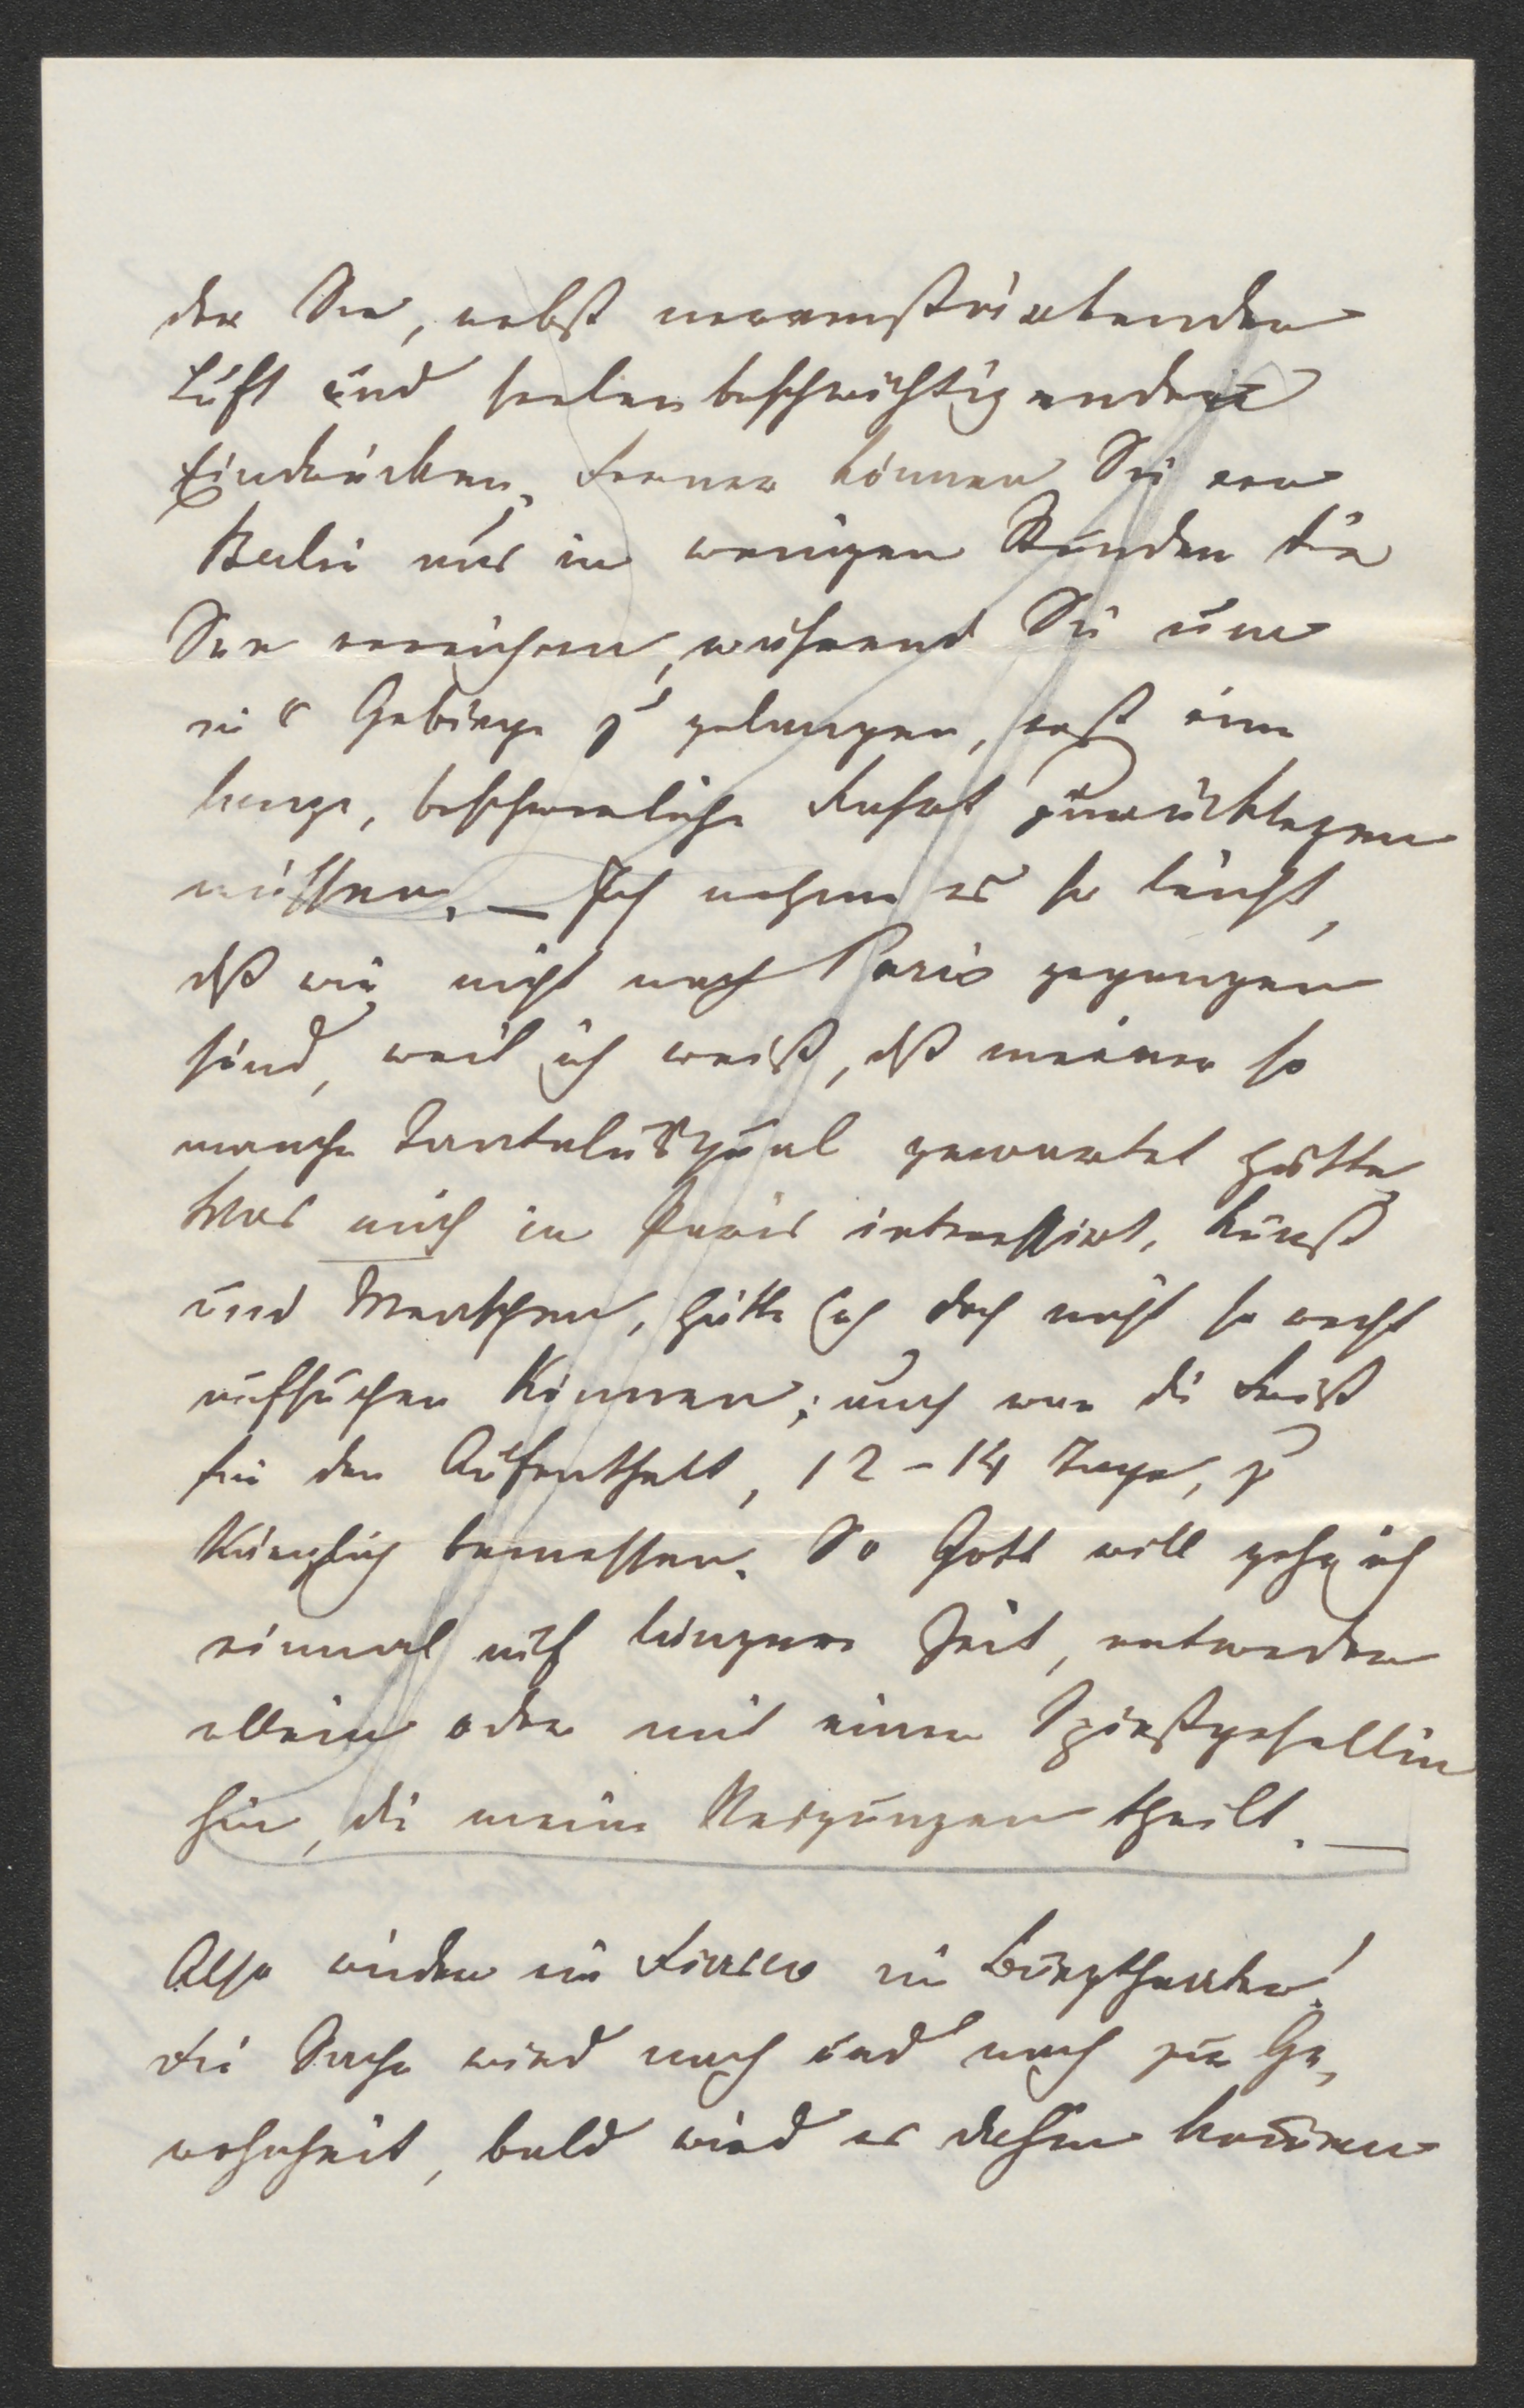 der See, nebst nervenstärkender
Luft und seelenbeschwichtigenden
Eindrücken. Ferner können Sie von
Berlin aus in wenigen Stunden die
See erreichen, während Sie um
in's Gebirge zu gelangen, erst eine
lange, beschwerliche Fahrt zurücklegen
müssen. — Ich nehme es so leicht,
dß wir nicht nach Paris gegangen
sind, weil ich weiß, dß meiner so
manche Tantalusqual gewartet hätte.
Was mich in Paris interessirt, Kunst
und Menschen, hätte ich doch nicht so recht
aufsuchen können; auch war die Frist
für den Aufenthalt, 12-14 Tage, zu
kürzlich bemessen. So Gott will gehe ich
einmal auf längere Zeit, entweder
allein oder mit einer Spießgesellin
hin, die meine Neigungen theilt. —
Also wieder ein Fiasco im Burgtheater!
Die Sache wird nach und nach zur Ge-
wohnheit, bald wird es dahin kom̅en